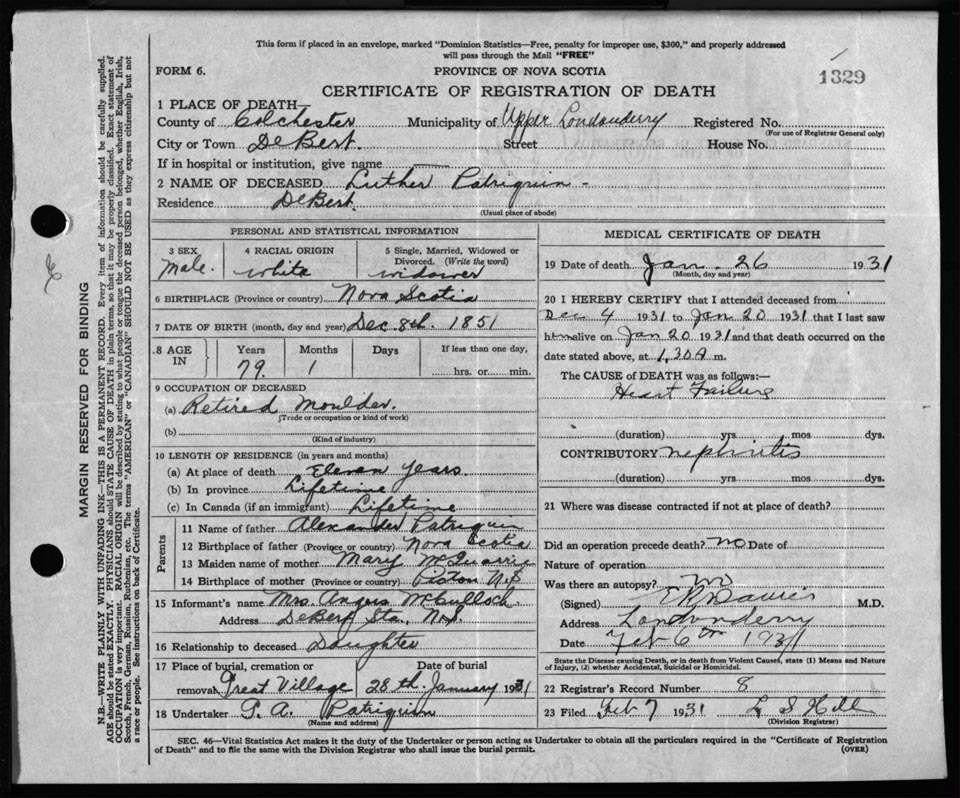 This form if placed in an envelope, marked "Dominion Statistics—Free, penalty for improper use, $300," and properly addressed
will pass through the Mail "FREE"
FORM 6.
PROVINCE OF NOVA SCOTIA
1329
CERTIFICATE OF REGISTRATION OF DEATH
1 PLACE OF DEATH—
County of Colchester Municipality of Upper Londonderry Registered No.
(For use of Registrar General only)
City or Town DeBert. Street House No.
If in hospital or institution, give name
2 NAME OF DECEASED Luther Patriquin -
Residence DeBert.
(Usual place of abode)
PERSONAL AND STATISTICAL INFORMATION
3 SEX 4 RACIAL ORIGIN 5 Single, Married, Widowed or Divorced. (Write the word)
Male. white widower
6 BIRTHPLACE (Province or country) Nova Scotia
7 DATE OF BIRTH (month, day and year) Dec. 8th. 1851
8 AGE IN Years Months Days If less than one day,
79. 1 hrs. or min.
9 OCCUPATION OF DECEASED
(a) Retired Moulder.
(Trade or occupation or kind of work)
(b)
(Kind of industry)
10 LENGTH OF RESIDENCE (in years and months)
(a) At place of death Eleven years
(b) In province Lifetime
(c) In Canada (if an immigrant) Lifetime
Parents
11 Name of father Alexander Patriquin
12 Birthplace of father (Province or country) Nova Scotia
13 Maiden name of mother Mary McQuarrie
14 Birthplace of mother (Province or country) Pictou N.S.
15 Informant's name Mrs. Angus McCulloch.
Address DeBert Sta., N.S.
16 Relationship to deceased Daughter
17 Place of burial, cremation or removal Great Village Date of burial 28th. January 1931
18 Undertaker G. A. Patriquin
(Name and address)
MEDICAL CERTIFICATE OF DEATH
19 Date of death Jan. 26 1931
(Month, day and year)
20 I HEREBY CERTIFY that I attended deceased from
Dec 4 1931 to Jan 20 1931 that I last saw
him alive on Jan 20 1931 and that death occurred on the
date stated above, at 1.30 A m.
The CAUSE OF DEATH was as follows:—
Heart Failure
(duration) yrs mos dys.
CONTRIBUTORY nephritis
(duration) yrs mos dys.
21 Where was disease contracted if not at place of death?
Did an operation precede death? no Date of
Nature of operation
Was there an autopsy? no
(Signed) M.D.
Address Londonderry
Date Feb 6th 1931
State the Disease causing Death, or in death from Violent Causes, state (1) Means and Nature
of Injury, (2) whether Accidental, Suicidal or Homicidal.
22 Registrar's Record Number 8
23 Filed Feb 7 1931 L S Hill
(Division Registrar)
SEC. 46—Vital Statistics Act makes it the duty of the Undertaker or person acting as Undertaker to obtain all the particulars required in the "Certificate of Registration
of Death" and to file the same with the Division Registrar who shall issue the burial permit.
(OVER)
MARGIN RESERVED FOR BINDING
N.B.—WRITE PLAINLY WITH UNFADING INK—THIS IS A PERMANENT RECORD. Every item of information should be carefully supplied.
AGE should be stated EXACTLY. PHYSICIANS should STATE CAUSE OF DEATH in plain terms, so that it may be properly classified. Exact statement of
OCCUPATION is very important. RACIAL ORIGIN will be described by stating to what people or tongue the deceased person belonged, whether English, Irish,
Scotch, French, German, Russian, Ruthenian, etc. The terms "AMERICAN" or "CANADIAN" SHOULD NOT BE USED as they express citizenship but not
a race or people. See instructions on back of Certificate.